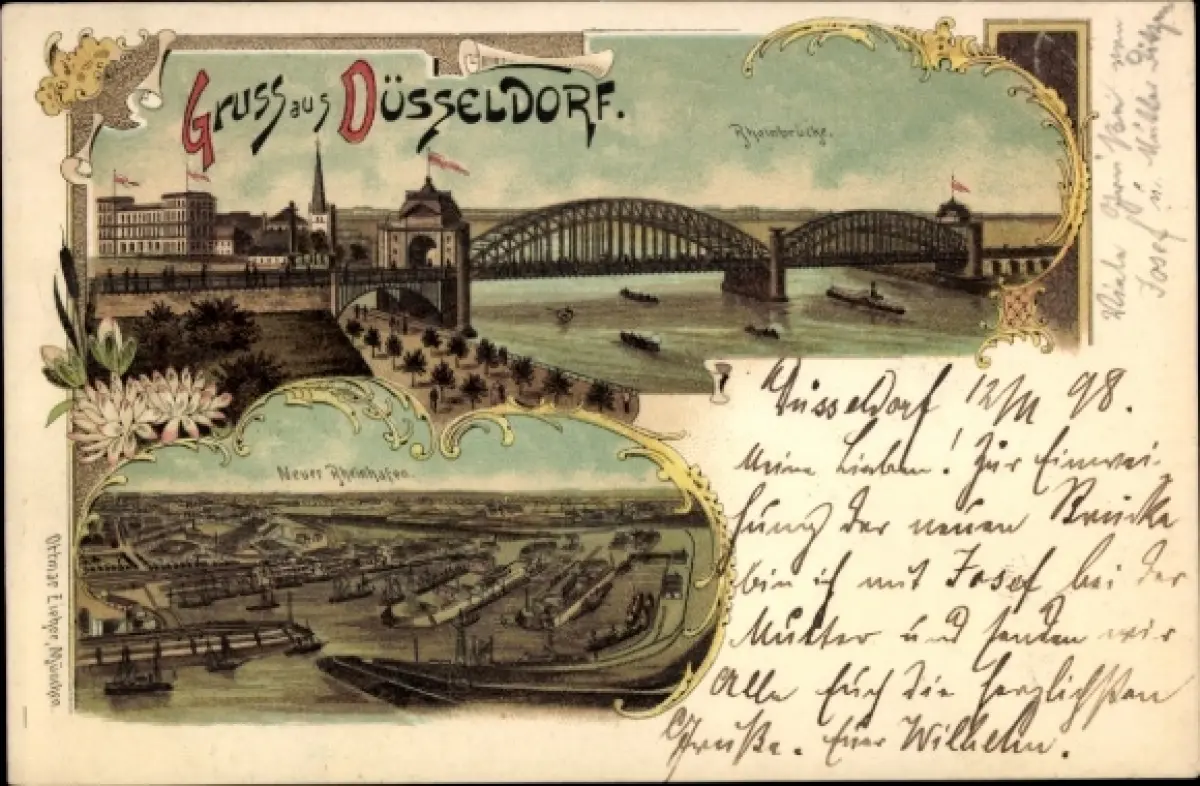 Gruss aus Düsseldorf.
Rheinbrücke.
Neuer Rheinhafen.
Ottmar Zieher, München.
Düsseldorf 12/11 98.
Meine Lieben! Zur Einwei-
hung der neuen Brücke
bin ich mit Josef bei der
Mutter und senden wir
Alle Euch die herzlichsten
Grüße. Euer Wilhelm.
Viele Grüße von
Josef u. Mutter